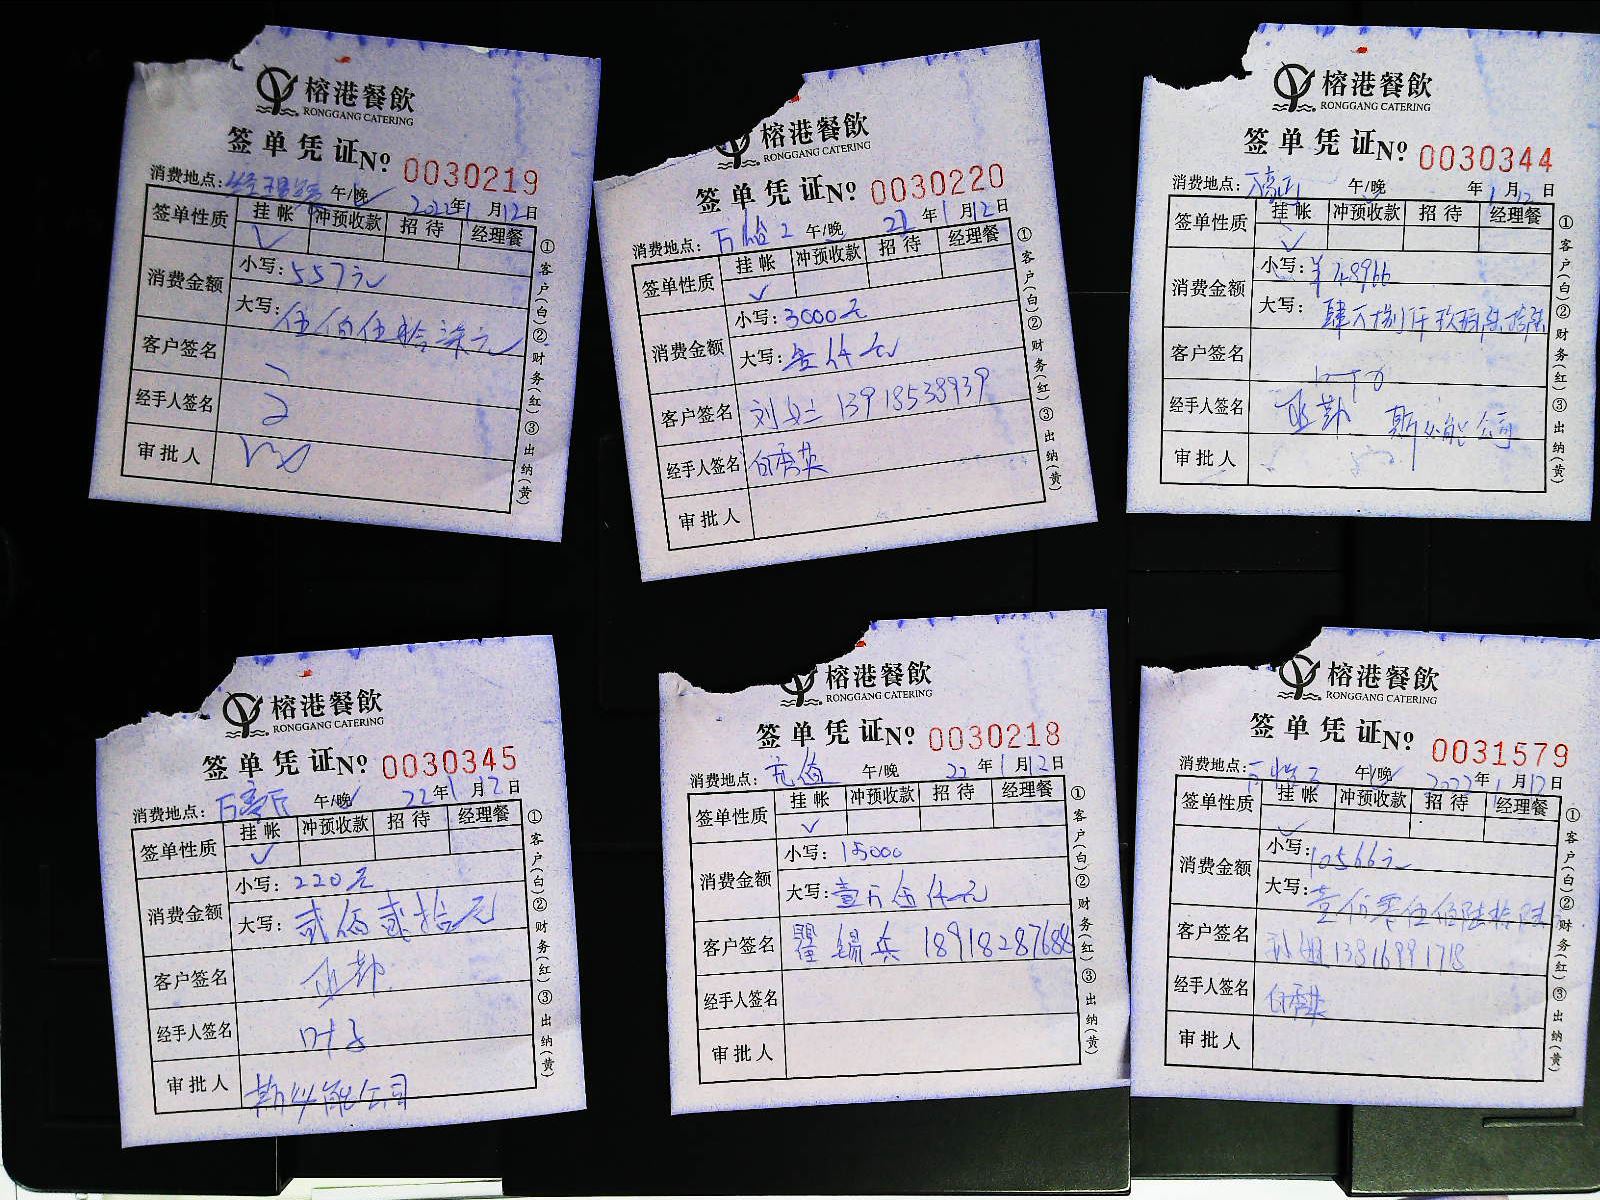 榕港餐飲
RONGGANG CATERING
签单凭证 Nº 0030219
消费地点: 午/晚 2022年1月12日
签单性质 挂帐 冲预收款 招待 经理餐
✓
消费金额 小写: 557元
大写: 伍佰伍拾柒元
客户签名
经手人签名
审批人
①客户(白)②财务(红)③出纳(黄)
榕港餐飲
RONGGANG CATERING
签单凭证 Nº 0030220
消费地点: 午/晚 22年1月12日
签单性质 挂帐 冲预收款 招待 经理餐
✓
消费金额 小写: 3000元
大写: 叁仟元
客户签名 刘女士 13918538939
经手人签名 白秀英
审批人
①客户(白)②财务(红)③出纳(黄)
榕港餐飲
RONGGANG CATERING
签单凭证 Nº 0030344
消费地点: 午/晚 年1月12日
签单性质 挂帐 冲预收款 招待 经理餐
✓
消费金额 小写: ¥48966
大写: 肆万捌仟玖佰陆拾陆
客户签名
经手人签名 公司
审批人
①客户(白)②财务(红)③出纳(黄)
榕港餐飲
RONGGANG CATERING
签单凭证 Nº 0030345
消费地点: 午/晚 22年1月12日
签单性质 挂帐 冲预收款 招待 经理餐
✓
消费金额 小写: 220元
大写: 贰佰贰拾元
客户签名
经手人签名 叶子
审批人 公司
①客户(白)②财务(红)③出纳(黄)
榕港餐飲
RONGGANG CATERING
签单凭证 Nº 0030218
消费地点: 午/晚 22年1月12日
签单性质 挂帐 冲预收款 招待 经理餐
✓
消费金额 小写: 15000
大写: 壹万伍仟元
客户签名 瞿锡兵 18918287688
经手人签名
审批人
①客户(白)②财务(红)③出纳(黄)
榕港餐飲
RONGGANG CATERING
签单凭证 Nº 0031579
消费地点: 午/晚 2022年1月12日
签单性质 挂帐 冲预收款 招待 经理餐
✓
消费金额 小写: 10566元
大写: 壹万零伍佰陆拾陆
客户签名 13816991718
经手人签名 白秀英
审批人
①客户(白)②财务(红)③出纳(黄)